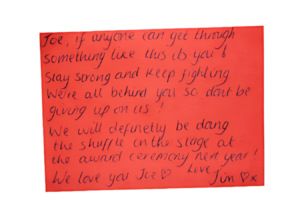 Joe, if anyone can get through
something like this its you!
Stay strong and keep fighting
We're all behind you so dont be
giving up on us!
We will definetly be doing
the shuffle on the stage at
the award ceremony next year!
We love you Joe♡ Love
Jim ♡x